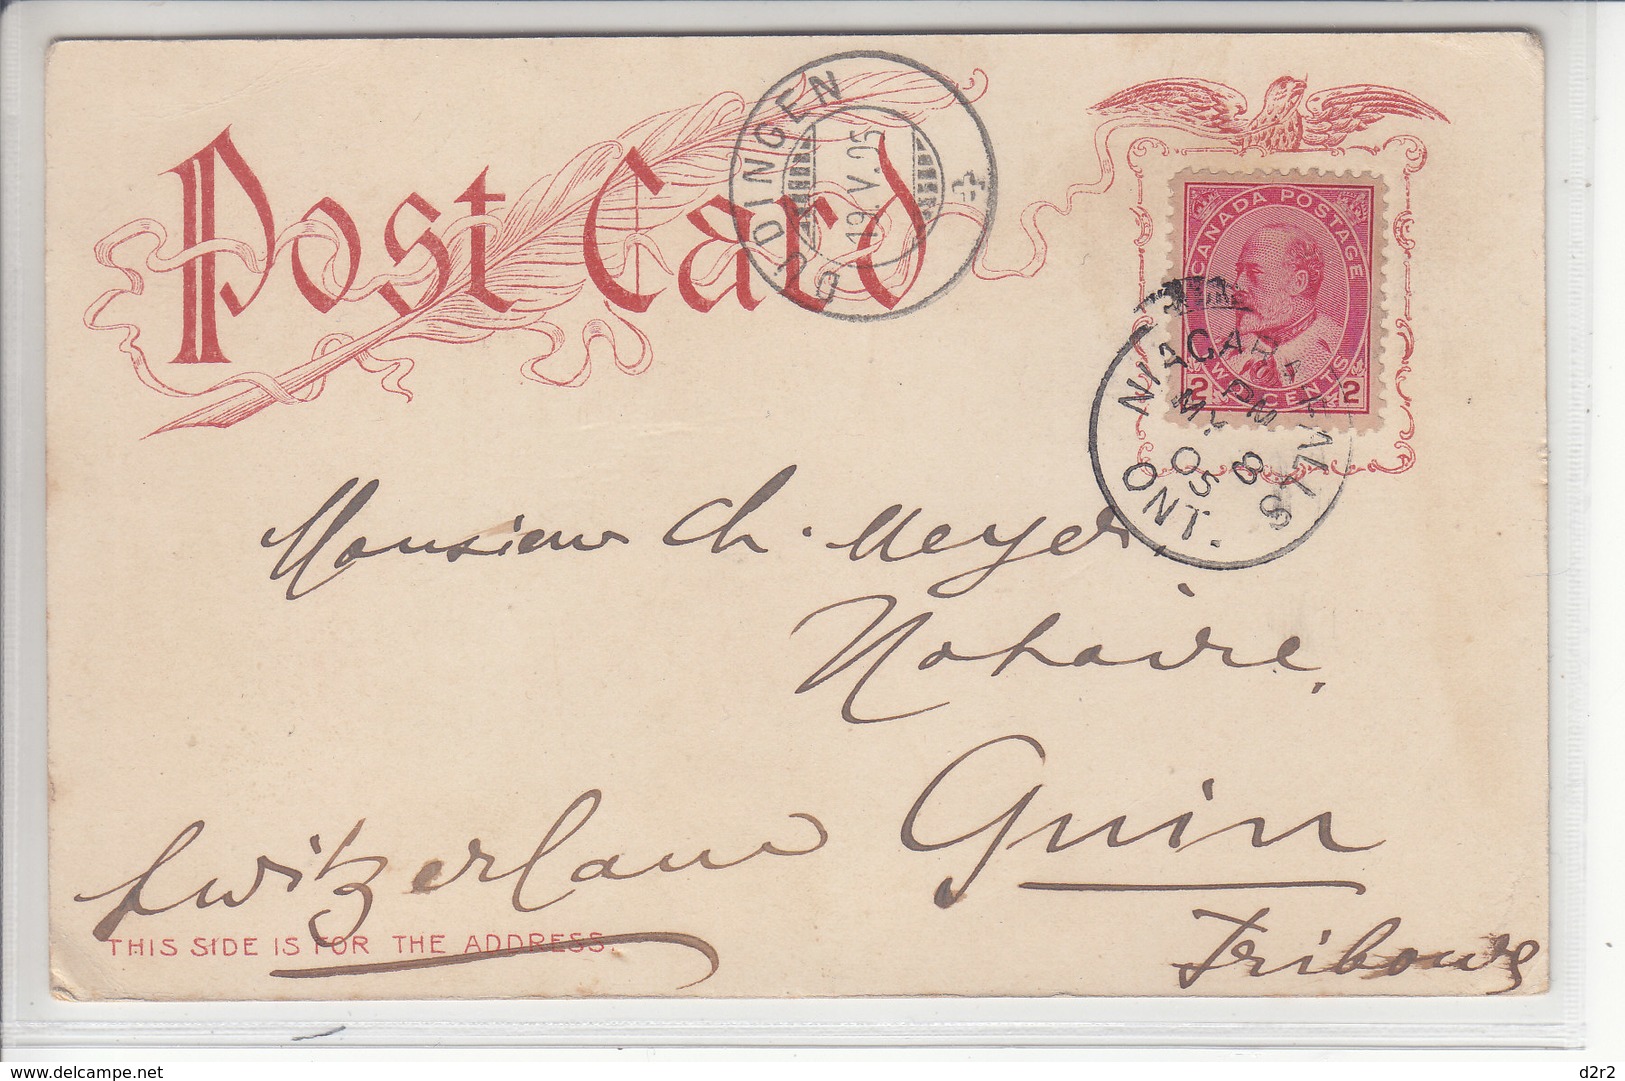 Post Card
GÜDINGEN
19.V.05
CANADA POSTAGE
2 TWO CENTS 2
NIAGARA FALLS
PM
MY 8
05
ONT.
Monsieur Ch. Meyer,
Notaire.
Guin
Switzerland
Fribourg
THIS SIDE IS FOR THE ADDRESS.
www.delcampe.net
d2r2